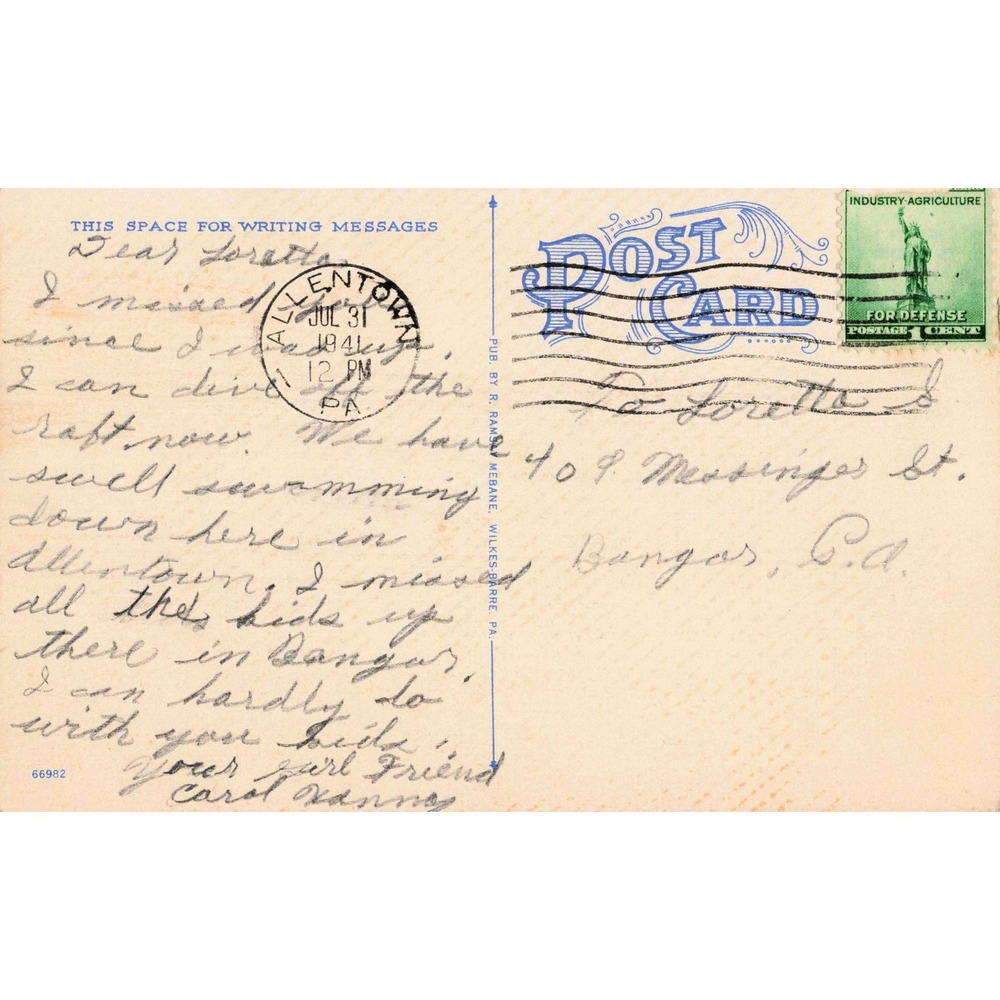 THIS SPACE FOR WRITING MESSAGES
Dear Loretta,
I missed you
since I was up.
I can dive off the
raft now. We have
swell swimming
down here in
Allentown. I missed
all the kids up
there in Bangor.
I can hardly do
with you kids.
Your girl Friend
Carol
66982
ALLENTOWN
JUL 31
1941
12 PM
PA.
PUB. BY R. RAMSAY MEBANE, WILKES-BARRE, PA.
POST
CARD
INDUSTRY-AGRICULTURE
FOR DEFENSE
POSTAGE 1 CENT
To Loretta S
409 Messinger St.
Bangor, P.A.